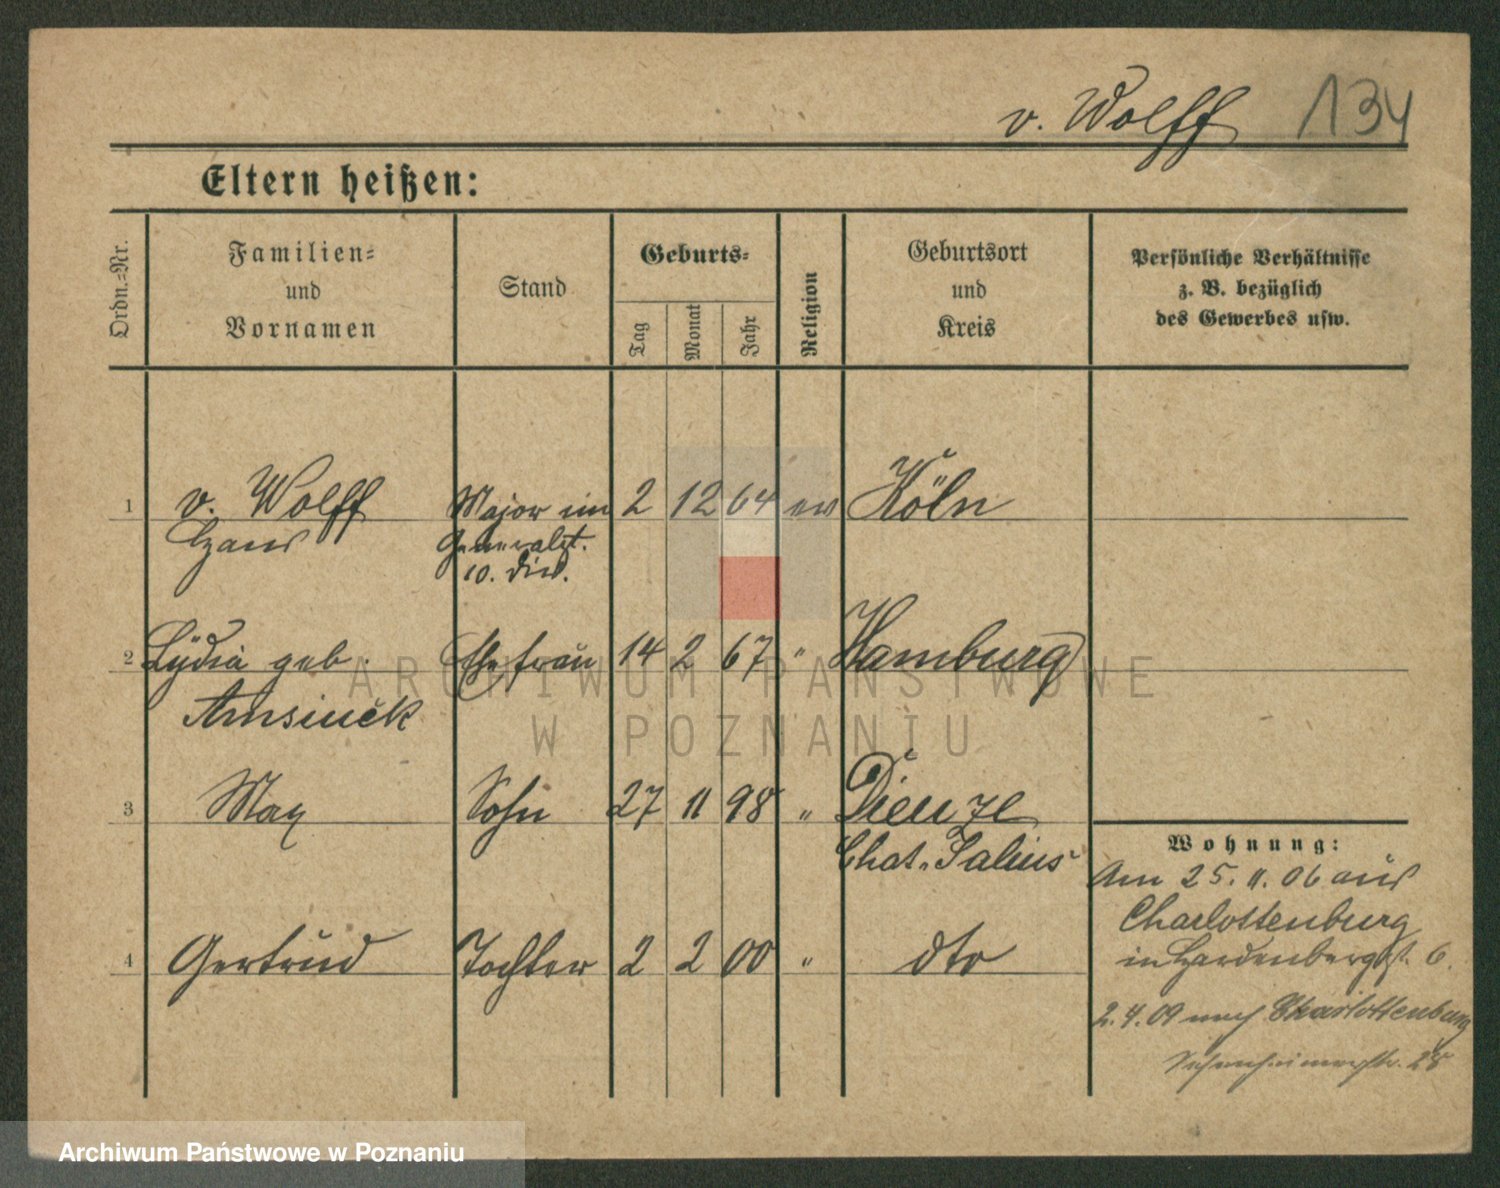 v. Wolff 134
Eltern heißen:
Ordn.-Nr.
Familien-
und
Vornamen
Stand
Geburts-
Tag
Monat
Jahr
Religion
Geburtsort
und
Kreis
Persönliche Verhältnisse
z. B. bezüglich
des Gewerbes usw.
1 v. Wolff Major im 2 12 64 ev Köln
Hans Generalst.
10. Div.
2 Lydia geb. Ehefrau 14 2 67 " Hamburg
Amsinck
3 Max Sohn 27 11 98 " Dieuze
Chat. Salins
4 Gertrud Tochter 2 2 00 " dto
Wohnung:
Am 25. 11. 06 aus
Charlottenburg
in Hardenbergst. 6.
2. 4. 09 nach Charlottenburg
28
ARCHIWUM PAŃSTWOWE
W POZNANIU
Archiwum Państwowe w Poznaniu